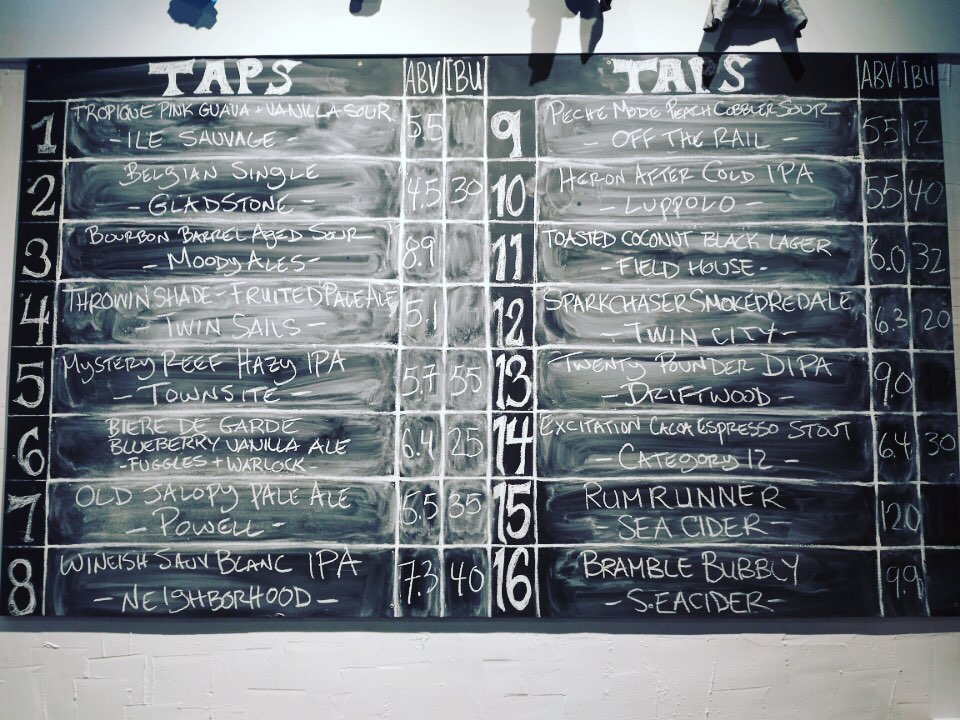 TAPS ABV IBU
1 TROPIQUE PINK GUAVA + VANILLA SOUR
- ILE SAUVAGE - 5.5
2 BELGIAN SINGLE
- GLADSTONE - 4.5 30
3 BOURBON BARREL AGED SOUR
- MOODY ALES - 8.9
4 THROWIN SHADE - FRUITED PALE ALE
- TWIN SAILS - 5.1
5 MYSTERY REEF HAZY IPA
- TOWNSITE - 5.7 55
6 BIERE DE GARDE
BLUEBERRY VANILLA ALE
- FUGGLES + WARLOCK - 6.4 25
7 OLD JALOPY PALE ALE
- POWELL - 6.5 35
8 WINEISH SAUV BLANC IPA
- NEIGHBORHOOD - 7.3 40
TAPS ABV IBU
9 PECHE MODE PEACH COBBLER SOUR
- OFF THE RAIL - 5.5 12
10 HERON AFTER COLD IPA
- LUPPOLO - 5.5 40
11 TOASTED COCONUT BLACK LAGER
- FIELD HOUSE - 6.0 32
12 SPARKCHASER SMOKED RED ALE
- TWIN CITY - 6.3 20
13 TWENTY POUNDER DIPA
- DRIFTWOOD - 9.0
14 EXCITATION CACOA ESPRESSO STOUT
- CATEGORY 12 - 6.4 30
15 RUMRUNNER
- SEA CIDER - 12.0
16 BRAMBLE BUBBLY
- S.EACIDER - 9.9